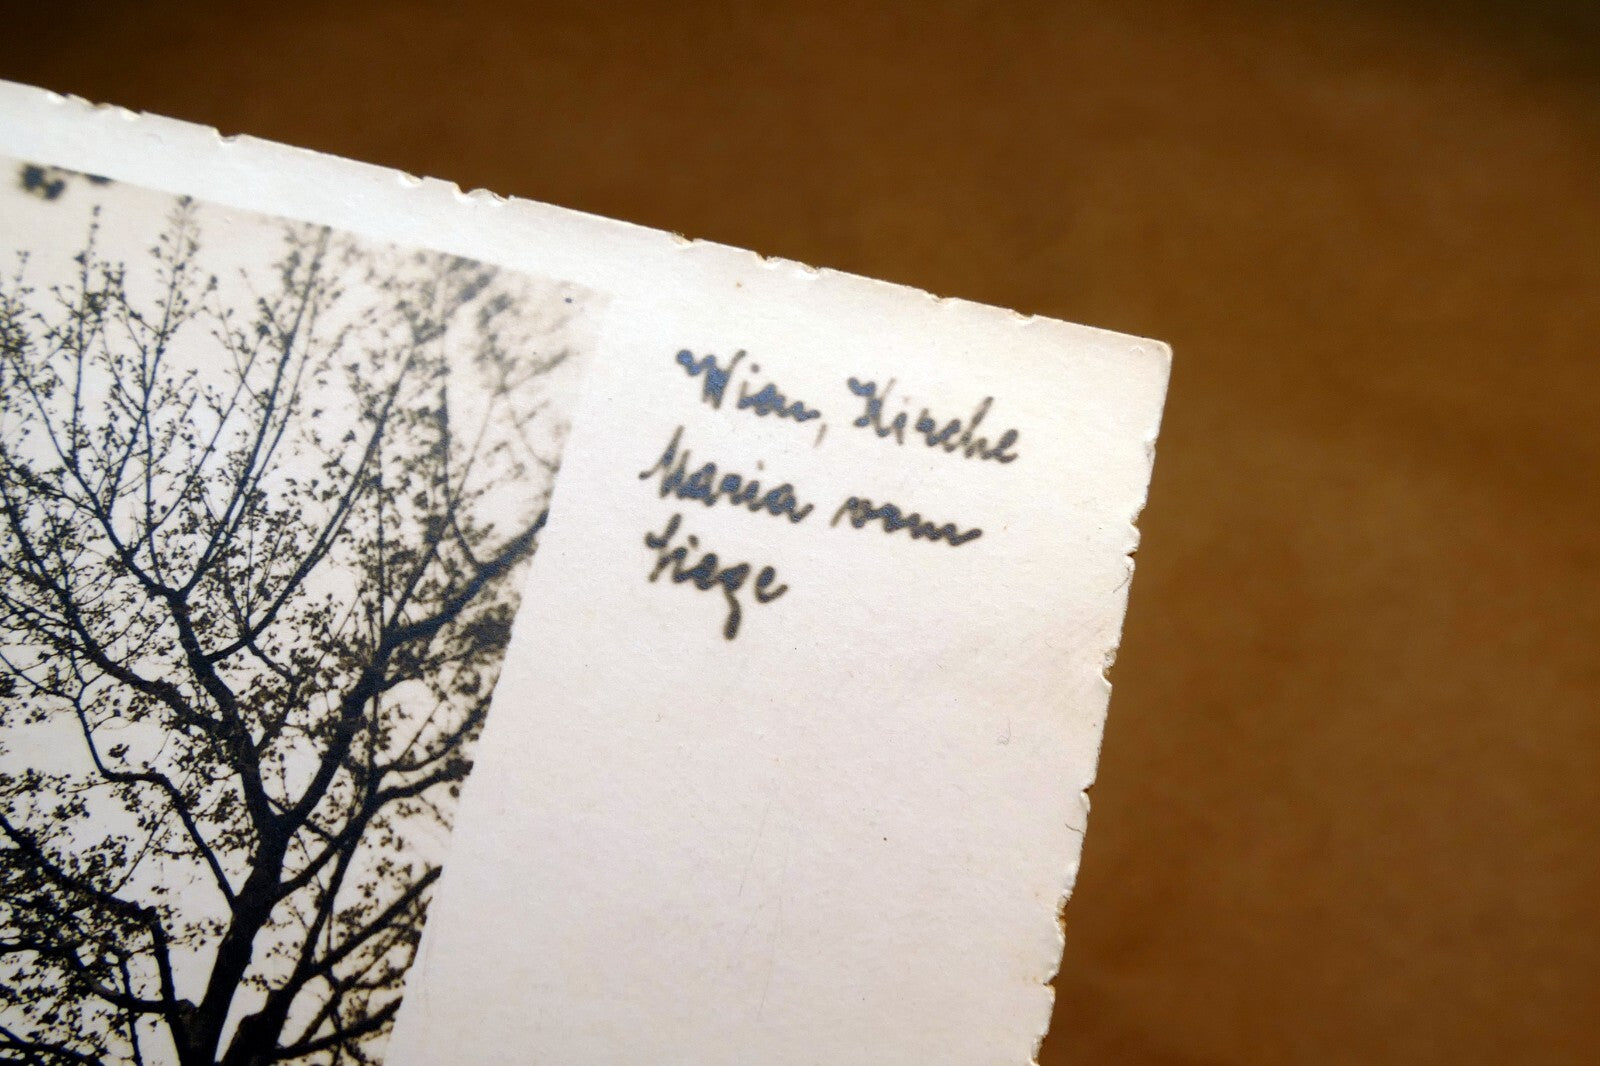 Wien, Kirche
Maria vom
Siege